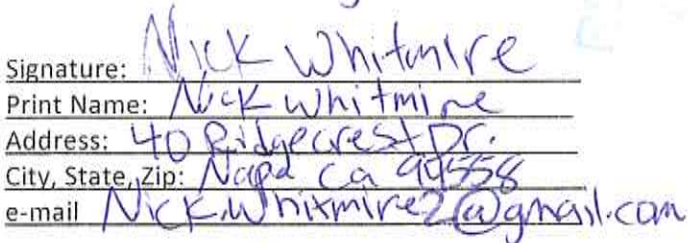 Signature: Nick Whitmire
Print Name: Nick Whitmire
Address: 40 Ridgecrest Dr.
City, State, Zip: Napa Ca 94558
e-mail Nick.Whitmire2@gmail.com